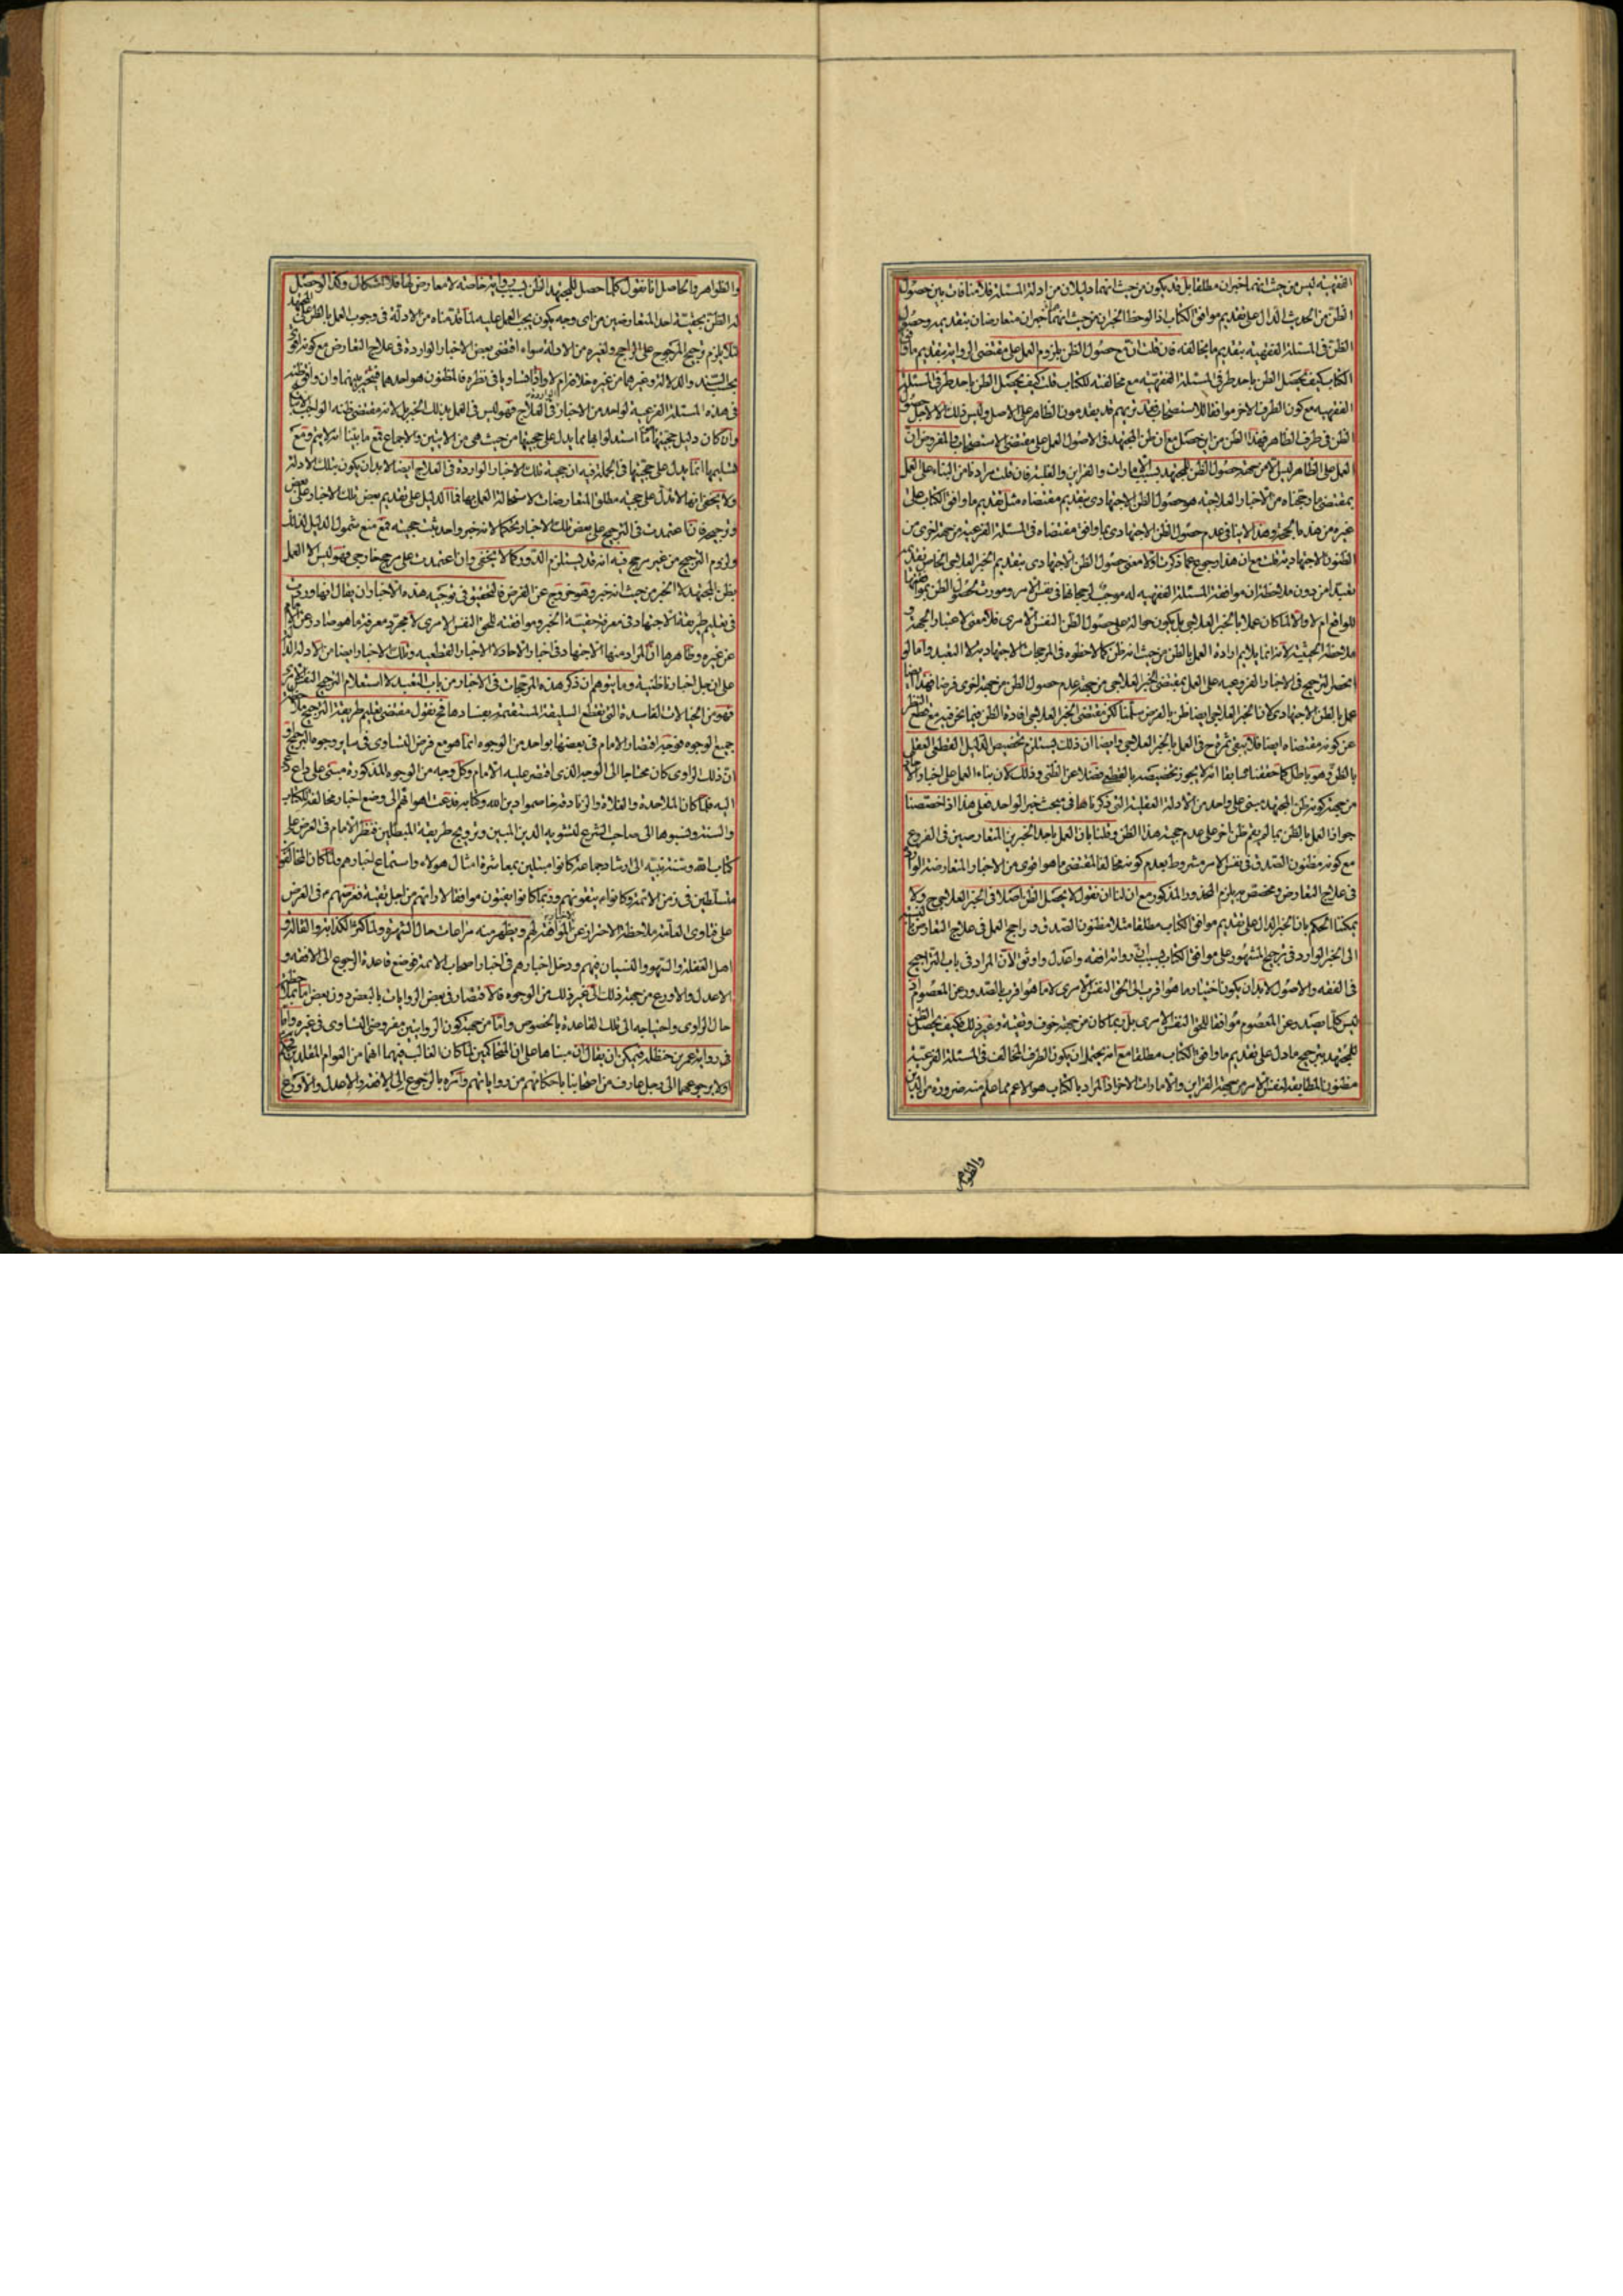 الفقهیه لیس من حیث انهما خبران مطلقا بل قد یکون من حیث انهما دلیلان من ادلة المسئلة فلا منافات بین حصول
الظن من الحدیث الدال علی تقدیم موافق الکتاب اذا لوحظ الخبرین من حیث انهما خبران متعارضان بتقدیمه وحصول
الظن فی المسئلة الفقهیه بتقدیم ما یخالفه فان قلت ان مع حصول الظن یلزوم العمل علی مقتضی الروایة بتقدیم ما وافق
الکتاب کیف یحصل الظن باحد طرفی المسئلة الفقهیه مع مخالفته للکتاب قلت کیف یحصل الظن باحد طرفی المسئلة
الفقهیه مع کون الطرف الاخر موافقا للاستصحاب فقد تریهم قد یقدمون الظاهر علی الاصل ولیس ذلک الا لاجل حصول
الظن فی طرف الظاهر فهذا الظن من این حصل مع ان ظن المجتهد فی الاصول العمل علی مقتضی الاستصحاب والمفروض ان
العمل علی الظاهر لیس الا من جهة حصول الظن للمجتهد بسبب الامارات والقراین والغلبة فان قلت مرادنا من البناء علی العمل
بمقتضی ما رجحناه من الاخبار العلاجیه هو حصول الظن الاجتهادی بتقدیم مقتضاه مثل تقدیم ما وافق الکتاب علی
غیره من هذه الجهة وهذا لا ینافی عدم حصول الظن الاجتهادی بما وافق مقتضاه فی المسئلة الفرعیه من جهة اخری من
الظنون الاجتهادیة قلت مع ان هذا رجوع عما ذکرت اولا معنی حصول الظن الاجتهادی بتقدیم الخبر العلاجی الخاص
تعبدا من دون ملاحظة ان موافقة المسئلة الفقهیه له موجب لرجحانها فی نفس الامر ومورث لحصول الظن
للواقع ام لا والا لما کان عملا بالخبر العلاجی بل یکون حوالة علی حصول الظن النفس الامری فلا معنی لاعتبار المجتهد و
ملاحظة الحیثیة لانه انما یلایم ارادة العمل بالظن من حیث انه ظن کما لاحظوه فی المرجحات الاجتهادیة لا التعبد واما لو
حصل الترجیح فی الاخبار الفروعیه علی العمل بمقتضی الخبر العلاجی من جهة عدم حصول الظن من جهة اخری فرضا فهذا ایضا
عمل بالظن الاجتهادی لان الخبر العلاجی ایضا ظن بالفرض سلمنا لکن مقتضی الخبر العلاجی افادة الظن فیما نحن فیه مع قطع النظر
عن کونه مقتضاه ایضا فلا یبقی ثمرة ح فی العمل بالخبر العلاجی وایضا ان ذلک یستلزم تخصیص الدلیل القطعی العقلی
بالظن وهو باطل کما حققنا سابقا انه لا یجوز تخصیصه بالقطعی فضلا عن الظنی وذلک لان بناء العمل علی اخبار الآحاد
من جهة کونه ظن المجتهد مبنی علی واحد من الادلة العقلیة التی ذکرناها فی مبحث خبر الواحد فعلی هذا اذا خصصنا
جواز العمل بالظن بما لم یقم ظن اخر علی عدم حجیة هذا الظن وقلنا بان العمل باحد الخبرین المتعارضین فی الفروع
مع کونه مظنون الصدق فی نفس الامر مشروط بعدم کونه مخالفا لمقتضی ما هو اقوی من الاخبار المتعارضة الواردة
فی علاج التعارض ومخصص به یلزم المحذور المذکور مع ان لنا ان نقول لا یحصل الظن اصلا فی الخبر العلاجی ولا
یمکننا الحکم بان الخبر الدال علی تقدیم موافق الکتاب مطلقا مثلا مظنون الصدق وراجح العمل فی علاج التعارض بالنسبة
الی الخبر الوارد فی ترجیح المشهور علی موافق الکتاب بسبب ان رواته افقه واعدل واوثق لان المراد فی باب التراجیح
فی الفقه والاصول لابد ان یکون اختیار ما هو اقرب الی الحق النفس الامری لا ما هو اقرب بالصدور عن المعصوم اذ
لیس کلما صدر عن المعصوم موافقا للحق النفس الامری بل ربما کان من جهة خوف وتقیة وغیر ذلک فکیف یحصل الظن
للمجتهد بترجیح ما دل علی تقدیم ما وافق الکتاب مطلقا مع انه یحتمل ان یکون الطرف المخالف فی المسئلة الفرعیة
مظنون المطابقة لنفس الامر من جهة القراین والامارات الاخر اذ المراد بالکتاب هو الاعم مما علم منه ضرورة من الدین
والظواهر
والظواهر والحاصل انا نقول کلما حصل للمجتهد الظن بسبب روایة خاصة لا معارض لها فلا اشکال وکذا لو حصل
له الظن بحقیة احد المتعارضین من ای وجه یکون یجب العمل علیه لما قدمناه من الادلة فی وجوب العمل بالظن علی المجتهد
لئلا یلزم ترجیح المرجوح علی الراجح ولغیره من الادلة سواء اقتضی بعض الاخبار الواردة فی علاج التعارض مع کونه اقوی
بحسب السند والدلالة وغیرهما من غیره خلافه ام لا واذا تساویا فی نظره فالمظنون هو احدهما فیتخیر بینهما وان وافق ظنه
فی هذه المسئلة الفرعیة لواحد من الاخبار الواردة فی العلاج فهو لیس فی العمل بذلک الخبر بل لانه مقتضی ظنه الواجب الاتباع
وان کان دلیل حجیتها ما استدلوا بها مما یدل علی حجیتها من حیث هی من الایتین والاجماع فمع ما بینا انه لا یتم ومع
تسلیمها انما یدل علی حجیتها فی الجملة فیه ان حجیة تلک الاخبار الواردة فی العلاج ایضا لابد ان یکون بتلک الادلة
ولا یخفی انها لا تدل علی حجیة مطلق المتعارضات لاستحالة العمل بها فما الدلیل علی تقدیم بعض تلک الاخبار علی بعض
وترجیحه فان اعتمدت فی الترجیح علی بعض تلک الاخبار تحکما لانه خبر واحد یثبت حجیته فمع منع شمول الدلیل لذلک
ولزوم الترجیح من غیر مرجح فیه انه قد یستلزم الدور کما لا یخفی وان اعتمدت علی مرجح خارجی فهو لیس الا العمل
بظن المجتهد لا الخبر من حیث انه خبر وهو خروج عن الفرض فالتحقیق فی توجیه هذه الاخبار ان یقال انها وردت
فی تعلیم طریقة الاجتهاد فی معرفة حقیة الخبر وموافقته للحق النفس الامری لا مجرد معرفة ما هو صادر عن الامام
عن غیره وظاهرها ان المراد منها الاجتهاد فی اخبار الآحاد لا الاخبار القطعیه وتلک الاخبار ایضا من الادلة الدالة
علی ان جل اخبارنا ظنیة وما یتوهم ان ذکر هذه المرجحات فی الاخبار من باب التعبد لا استعلام الترجیح النفس الامری
فهو من الخیالات الفاسدة التی تقطع السلیقة المستقیمة بفسادها فح نقول مقتضی تعلیم طریقة الترجیح ملاحظة
جمیع الوجوه فوجه اقتصار الامام فی بعضها بواحد من الوجوه انما هو مع فرض التساوی فی سایر وجوه الترجیح او
ان ذلک الراوی کان محتاجا الی الوجه الذی اقتصر علیه الامام وکل وجه من الوجوه المذکورة مبتنی علی داع دعی
الیه فلما کان الملاحدة والغلاة والزنادقة خاصموا دین الله وکتابه فدعت اهوائهم الی وضع اخبار مخالفة للکتاب
والسنة ونسبوها الی صاحب الشرع لتشویه الدین المبین وترویج طریقة المبطلین فنظر الامام فی العرض علی
کتاب الله وسنة نبیه الی ارشاد جماعة کانوا مبتلین بمعاشرة امثال هولاء واستماع اخبارهم ولما کان المخالفون
متسلطین فی زمن الائمة وکانوا ع یتقونهم وربما کانوا یفتون موافقا لاراءهم من اجل تقیة فغرضهم ع فی العرض
علی فتاوی العامة ملاحظة الاحتراز عن الموافقة لهم ویظهر منه مراعات حال الشهرة ولما کثر الکذابة والقالة و
اهل الغفلة والسهو والنسیان فیهم ودخل اخبارهم فی اخبار اصحاب الائمة فوضع قاعدة الرجوع الی الافقه و
الاعدل والاورع من جهة ذلک الی غیر ذلک من الوجوه فالاقتصار فی بعض الروایات بالبعض دون بعض اما بملاحظة
حال الراوی واحتیاجه الی تلک القاعدة بالخصوص واما من جهة کون الروایتین مفروضی التساوی فی غیره واما
فی روایة عمر بن حنظلة فیمکن ان یقال ان مبناها علی ان المتحاکمین لما کان الغالب فیهما انهما من العوام المقلدین فحکم
اولا برجوعهما الی رجل عارف من اصحابنا باحکامهم من روایاتهم وامره بالرجوع الی الافقه والاعدل والاورع